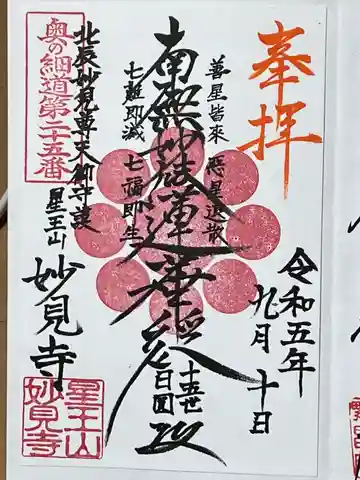 奉拝
令和五年
九月十日
善星皆來 悪星退散
南無妙法蓮華経
七難即滅 七福即生
十五世
日圓
北辰妙見尊天御守護
奥の細道第二十五番
星王山
妙見寺
星王山
妙見寺